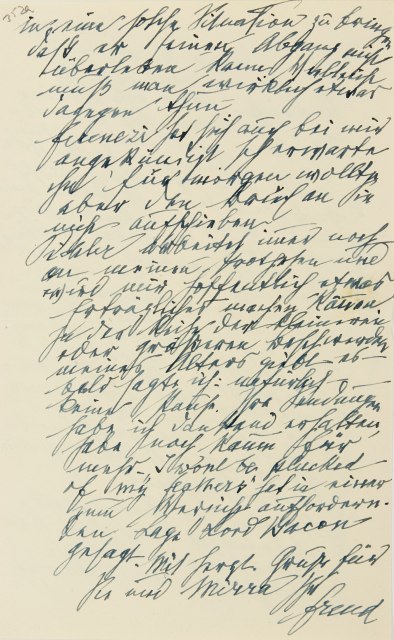 352a
in eine solche Situation zu bringen
daß er seinen Abgang nicht
überleben kann. Vielleicht
muß man wirklich etwas
dagegen thun
Ferenczi hat sich auch bei mir
angekündigt. Ich erwarte
ihn für morgen wollte
aber den Brief an Sie
nicht aufschieben.
arbeitet immer noch
an meinen Prothesen und
wird mir hoffentlich etwas
Erträgliches machen können
In der Reihe der kleineren
oder größeren Beschwerden
meines Alters gibt es
bald sagte ich: natürlich
keine Pause. Ihre Sendungen
habe ich dankend erhalten,
habe noch kaum für
mehr. I wont be plucked
of my feathers hat in einer
zum Verzicht auffordern-
den Lage Lord Bacon
gesagt.
Mit herzl. Gruß für
Sie und Mirra Ihr
Freud